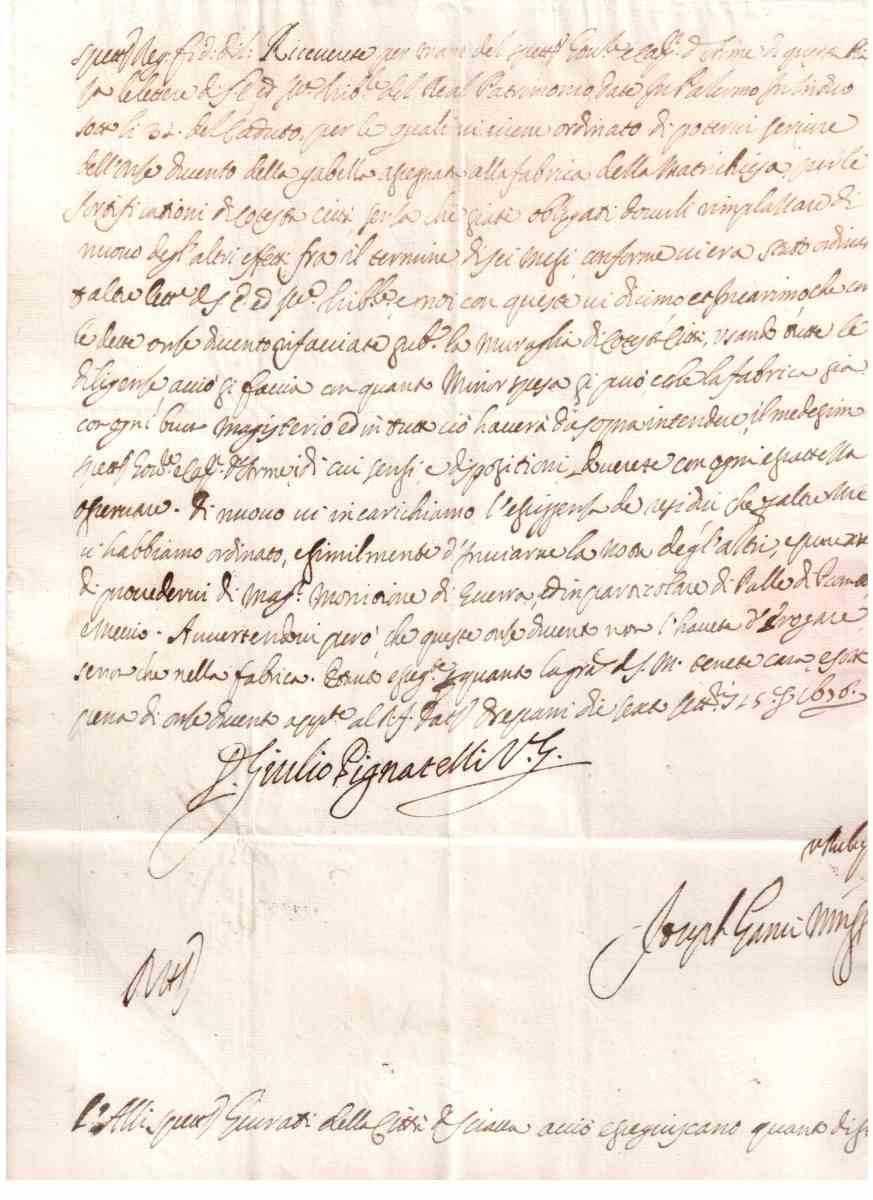 spett Reg. fidi dili: Riceverete per mani del spett Gov.re e Cap. d'Arme di questa
le lettere di S. E. ed Trib.le del Real Patrimonio date In Palermo
sotto li 31. del Caduto, per le quali vi viene ordinato di potervi servire
dell'Onse ducento della gabella assegnata alla fabrica della Matrichiesa, per le
fortificationi di cotesta città per la che siate obligati doverli rimplassare di
nuovo degl'altri effetti fra il termine di sei mesi conforme vi era stato
altre lett.e di S. E. ed Trib.le, e noi con queste vi dicimo et Incarimo che con
le dette onse ducento rifacciate la Muraglia di Cotesta Città, usando tutte le
diligense acciò si faccia con quanto Minor spesa si può, e che la fabrica sia
con ogni buon Magisterio ed in tutto ciò haverà da sopraintendere il medesimo
spett Gov.re e Cap. d'Arme, di cui sensi, e dispositioni doverete con ogni esattessa
osservare. Di nuovo vi incarichiamo l'esiggensa de residii che altre
vi habbiamo ordinato, e similmente d'Inviarne la nota degl'altri,
di provedervi di Mag.r Monitione di Guerra, ed in particolare di Palle di
e Miccio. Avvertendovi però, che queste onse ducento non l'havete d'Erogare
senon che nella fabrica. quanto la gra di S. M. tenete cara, e sotto
pena di onse ducento app.te al R. f. Dat Drepani die 1676.
D. Giulio Pignatelli V. G.
Joseph
Alli spett Giurati della Città di Sciacca acciò esseguiscano quanto di